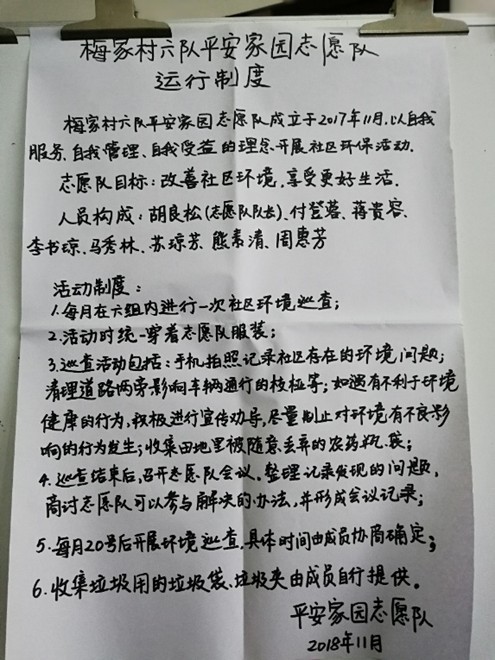 梅家村六队平安家园志愿队
运行制度
梅家村六队平安家园志愿队成立于2017年11月,以自我
服务、自我管理、自我受益的理念开展社区环保活动.
志愿队目标:改善社区环境,享受更好生活.
人员构成:胡良松(志愿队队长)、付登蓉、蒋贵容、
李书琼、马秀林、苏琼芳、熊素清、周惠芳
活动制度:
1.每月在六组内进行一次社区环境巡查;
2.活动时统一穿着志愿队服装;
3.巡查活动包括:手机拍照记录社区存在的环境问题;
清理道路两旁影响车辆通行的枝桠等;如遇有不利于环境
健康的行为,积极进行宣传劝导,尽量制止对环境有不良影
响的行为发生;收集田地里被随意丢弃的农药瓶、袋;
4.巡查结束后,召开志愿队会议,整理记录发现的问题,
商讨志愿队可以参与解决的办法,并形成会议记录;
5.每月20号后开展环境巡查,具体时间由成员协商确定;
6.收集垃圾用的垃圾袋、垃圾夹由成员自行提供。
平安家园志愿队
2018年11月